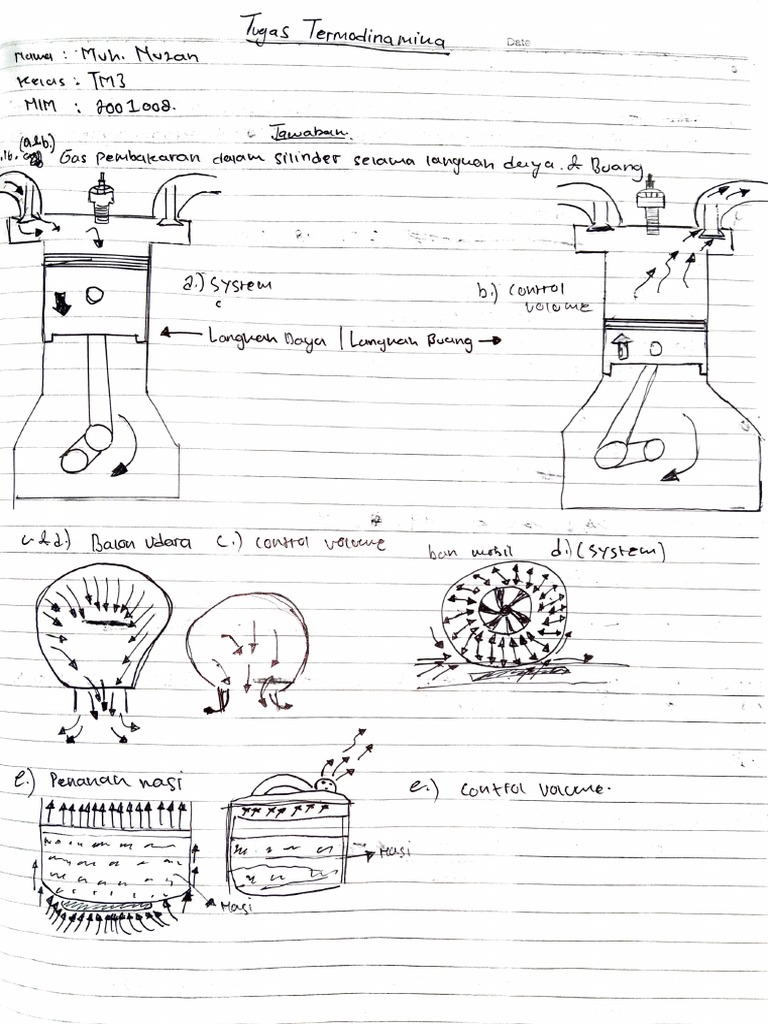 Tugas Termodinamika
Date
Nama : Muh. Muzan
Kelas : TM3
NIM : 2001002.
Jawaban.
(a&b.)
Gas pembakaran dalam silinder selama langkah daya & Buang
a.) System
b.) control volume
← Langkah Daya | Langkah Buang →
c & d.) Balon Udara c.) control volume
ban mobil d.) (System)
e.) Penanak nasi
e.) control volume.
Nasi
Nasi